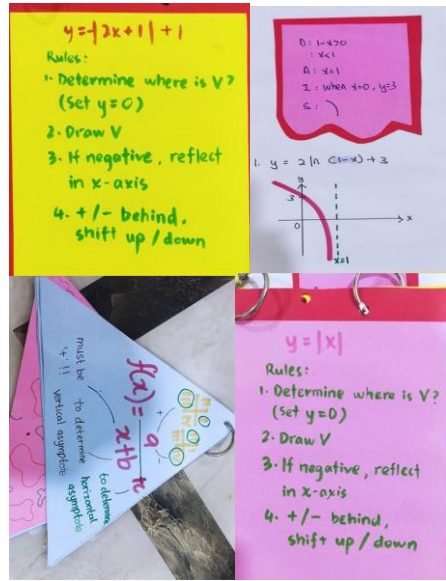 y=-|2x+1|+1
Rules:
1. Determine where is V?
(Set y=0)
2. Draw V
3. If negative, reflect
in x-axis
4. +/- behind,
shift up / down
D: 1-x>0
: x<1
A: x=1
I: when x=0, y=3
S:
1. y = 2 ln (1-x) + 3
y
3
0
x
x=1
f(x) = a/x+b ± c
must be '+' !!
to determine
vertical asymptote
to determine
horizontal
asymptote
y=|x|
Rules:
1. Determine where is V?
(Set y=0)
2. Draw V
3. If negative, reflect
in x-axis
4. +/- behind,
shift up / down